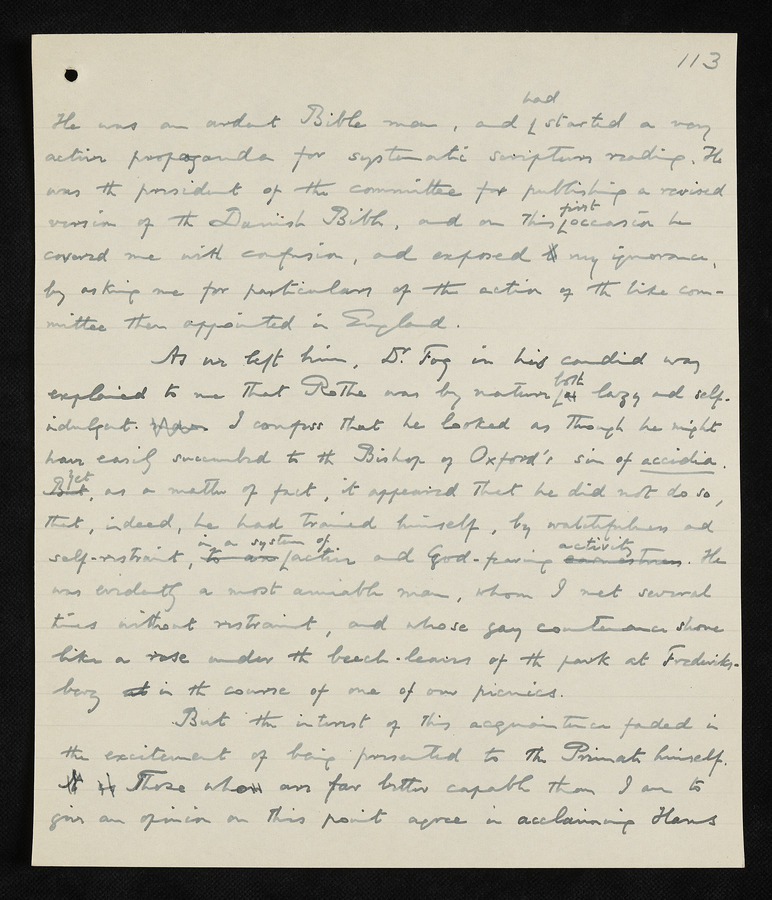 113
had
He was an ardent Bible man, and started a very
active propaganda for systematic scripture reading. He
was the president of the committee for publishing a revised
version of the Danish Bible, and on this first occasion he
covered me with confusion, and exposed my ignorance,
by asking me for particulars of the action of the like com-
mittee then appointed in England.
As we left him, Dr. Fog in his candid way
explained to me that Rothe was by nature both lazy and self-
indulgent. I confess that he looked as though he might
have easily succumbed to the Bishop of Oxford's sin of accidia.
But, yet, as a matter of fact, it appeared that he did not do so,
that, indeed, he had trained himself, by watchfulness and
in a system of activity
self-restraint, to an action and God-fearing earnestness. He
was evidently a most amiable man, whom I met several
times without restraint, and whose gay countenance shone
like a rose under the beech-leaves of the park at Frederiks-
berg at in the course of one of our picnics.
But the interest of this acquaintance faded in
the excitement of being presented to the Primate himself.
Those who are far better capable than I am to
give an opinion on this point agree in acclaiming Hans